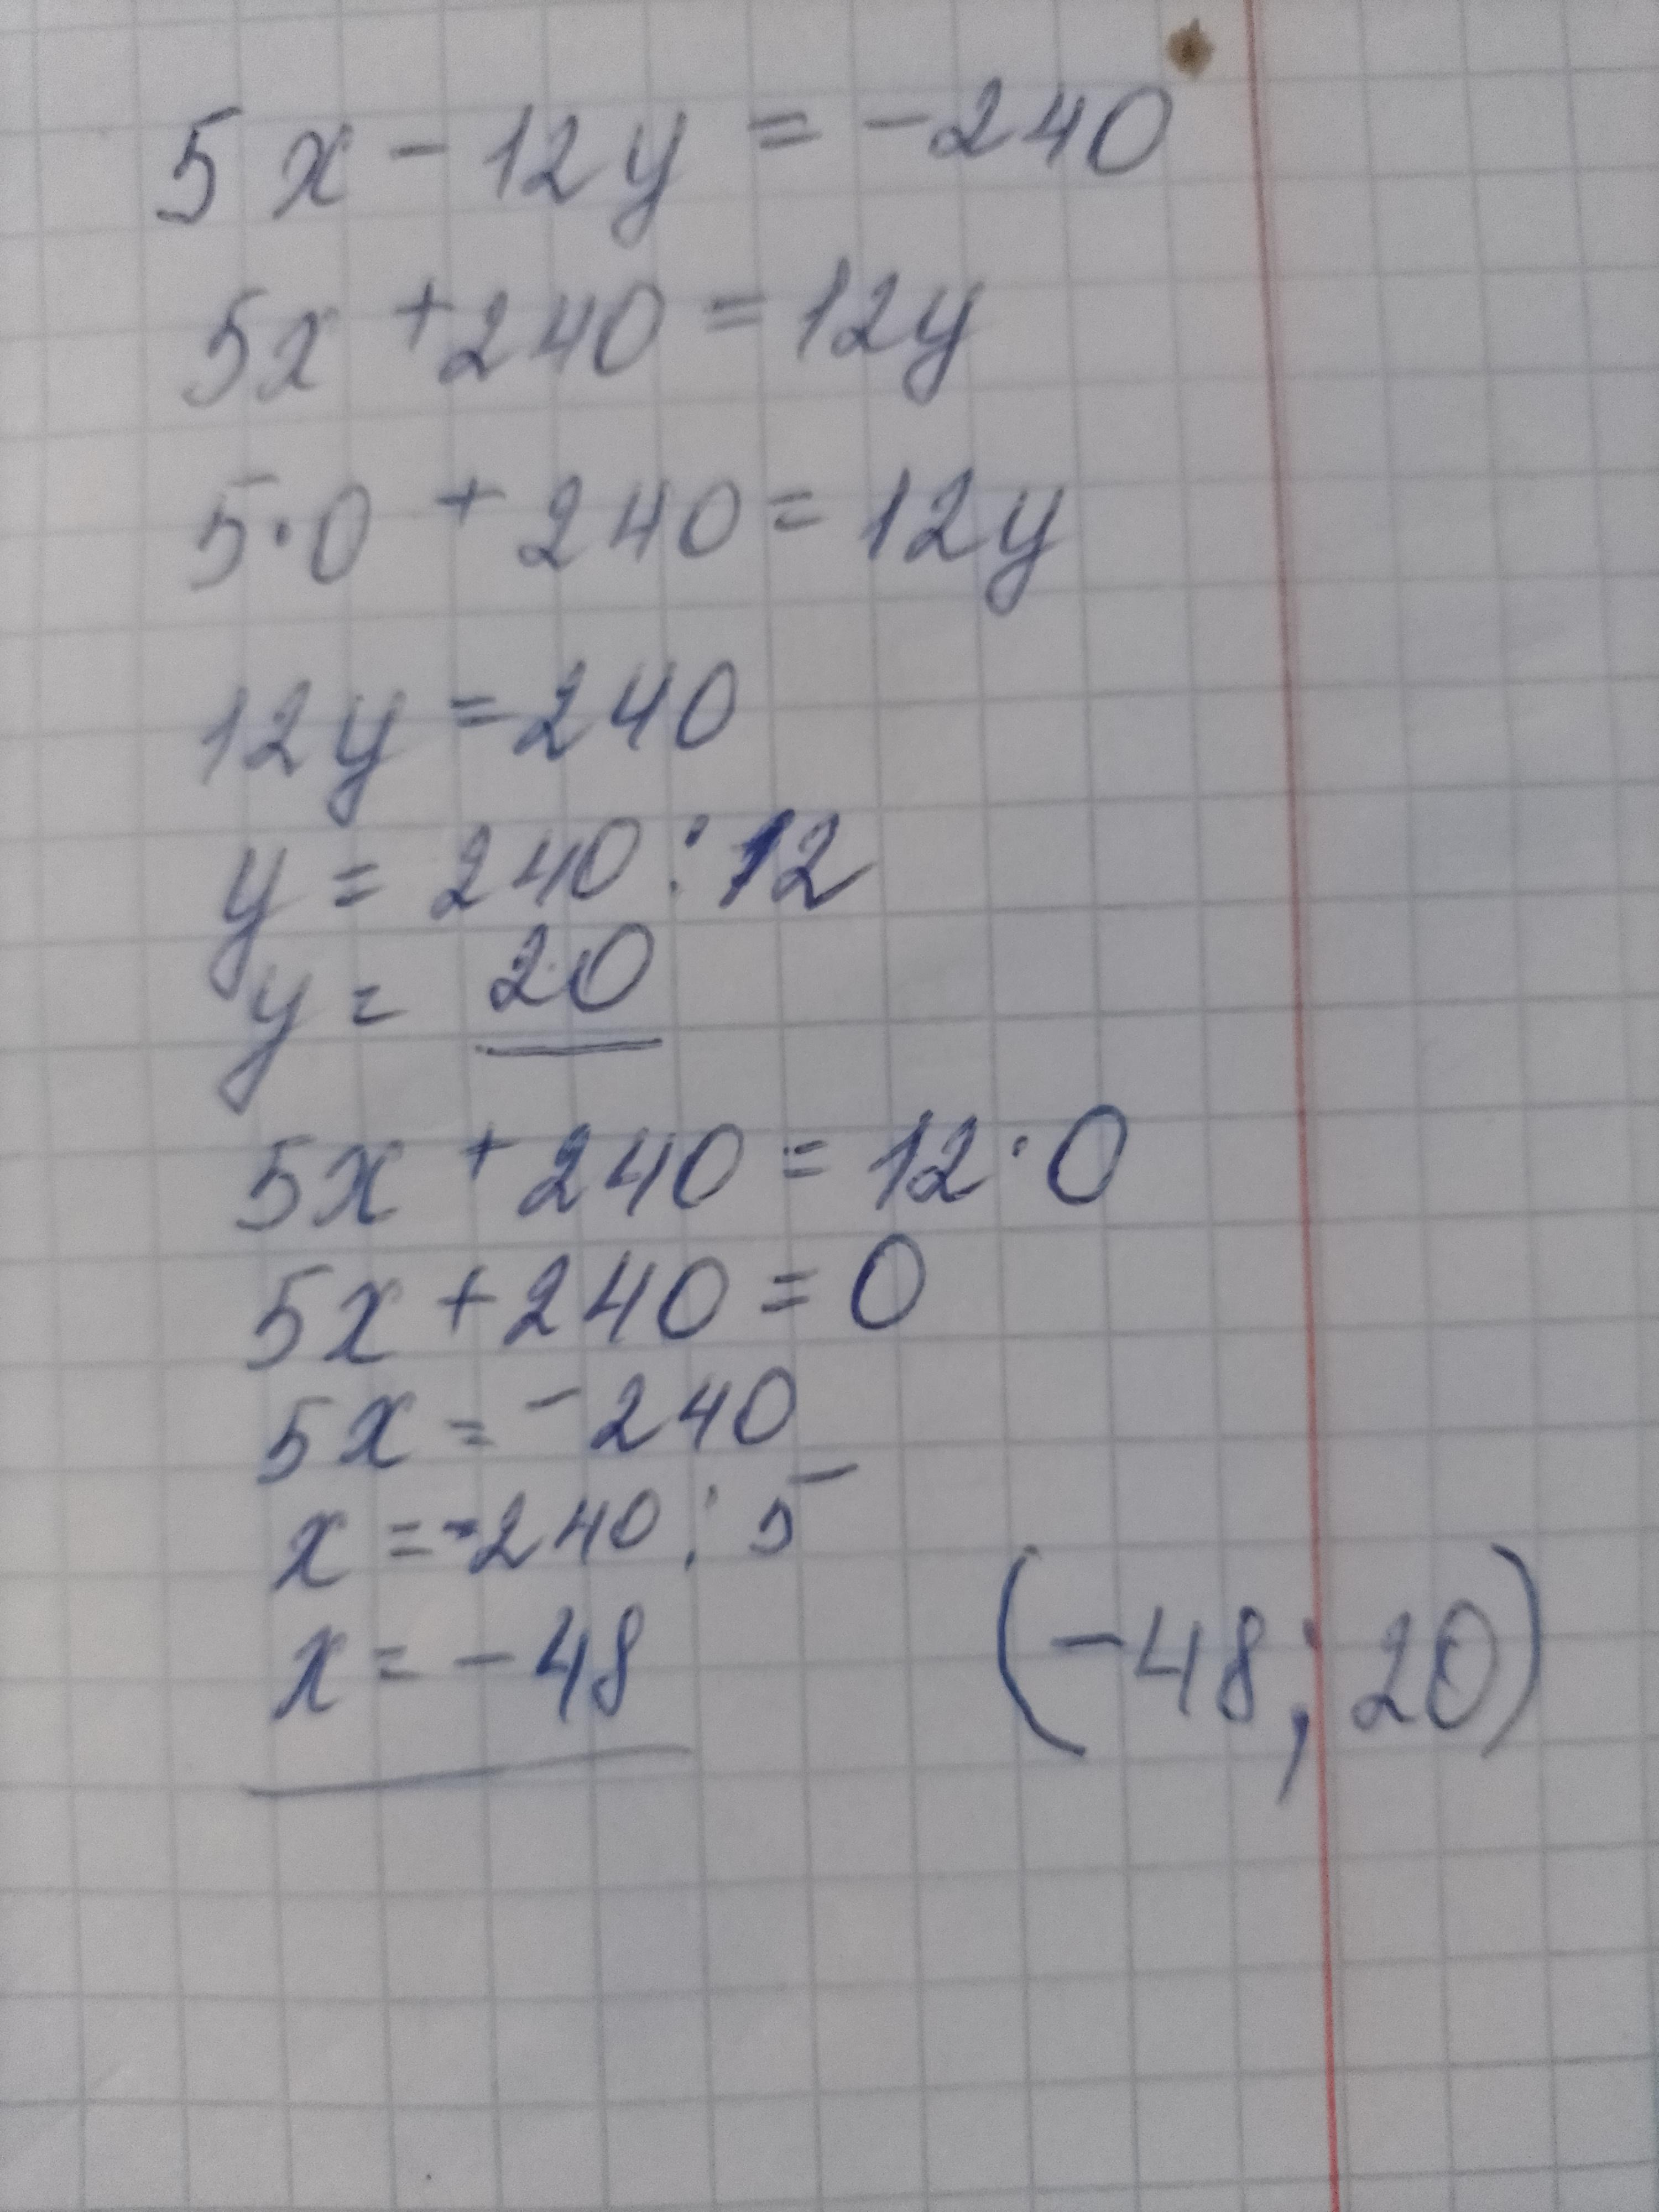 5x - 12y = -240
5x + 240 = 12y
5·0 + 240 = 12y
12y = 240
y = 240 : 12
y = 20
5x + 240 = 12·0
5x + 240 = 0
5x = -240
x = -240 : 5
x = -48
(-48; 20)